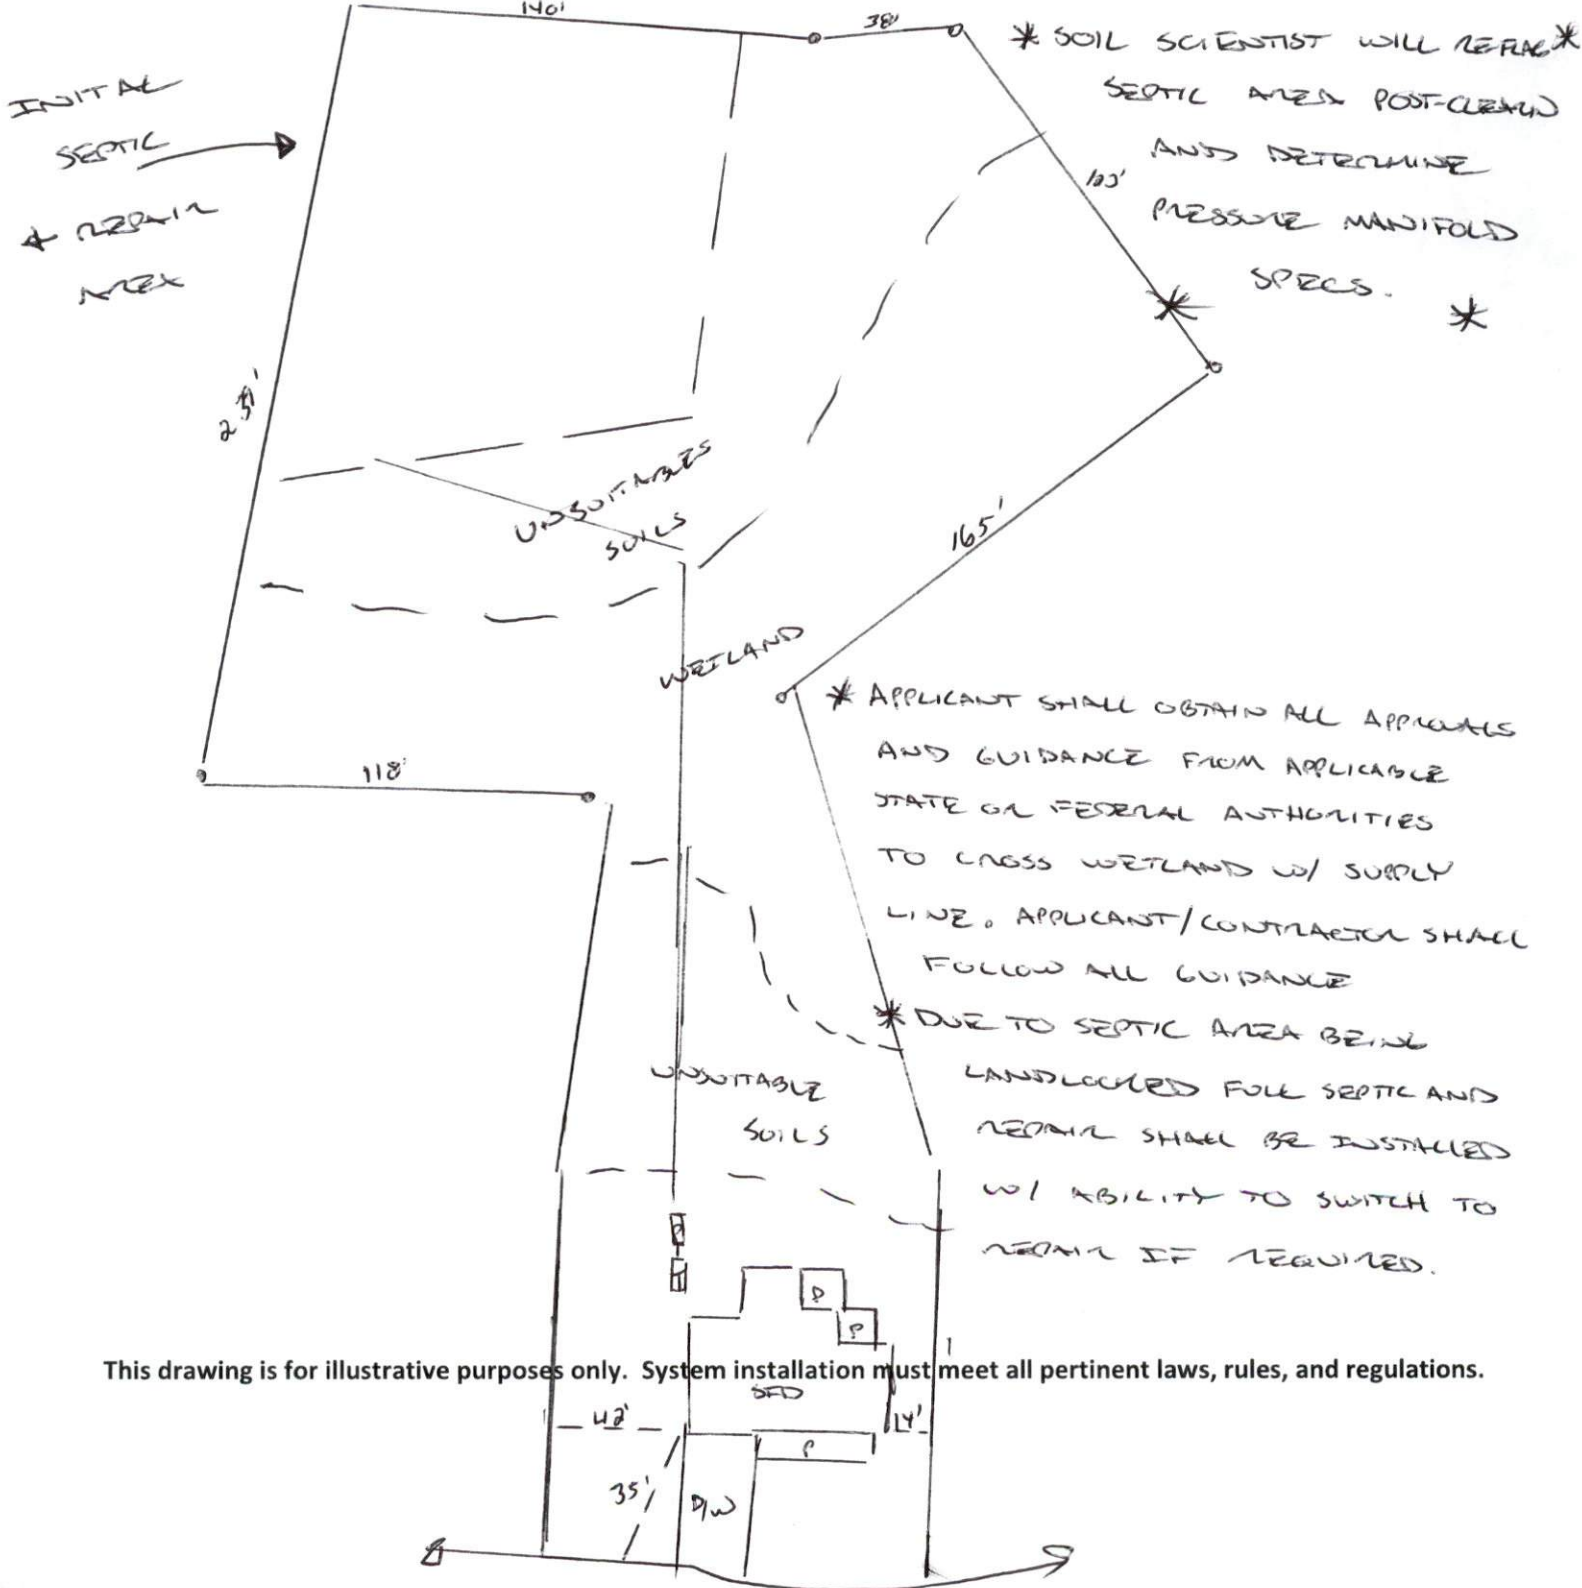 140'
38'
INITAL
SEPTIC
& REPAIR
AREA
* SOIL SCIENTIST WILL REFLAG *
SEPTIC AREA POST-CLEARIN
AND DETERMINE
PRESSURE MANIFOLD
SPECS. *
UNSUITABLES
SOILS
165'
WETLAND
118'
* APPLICANT SHALL OBTAIN ALL APPROVALS
AND GUIDANCE FROM APPLICABLE
STATE OR FEDERAL AUTHORITIES
TO CROSS WETLAND W/ SUPPLY
LINE. APPLICANT/CONTRACTOR SHALL
FOLLOW ALL GUIDANCE
* DUE TO SEPTIC AREA BEING
LANDLOCKED FULL SEPTIC AND
REPAIR SHALL BE INSTALLED
W/ ABILITY TO SWITCH TO
REPAIR IF REQUIRED.
UNSUITABLE
SOILS
P
T
D
P
This drawing is for illustrative purposes only. System installation must meet all pertinent laws, rules, and regulations.
SFD
42'
14'
P
35'
D/W